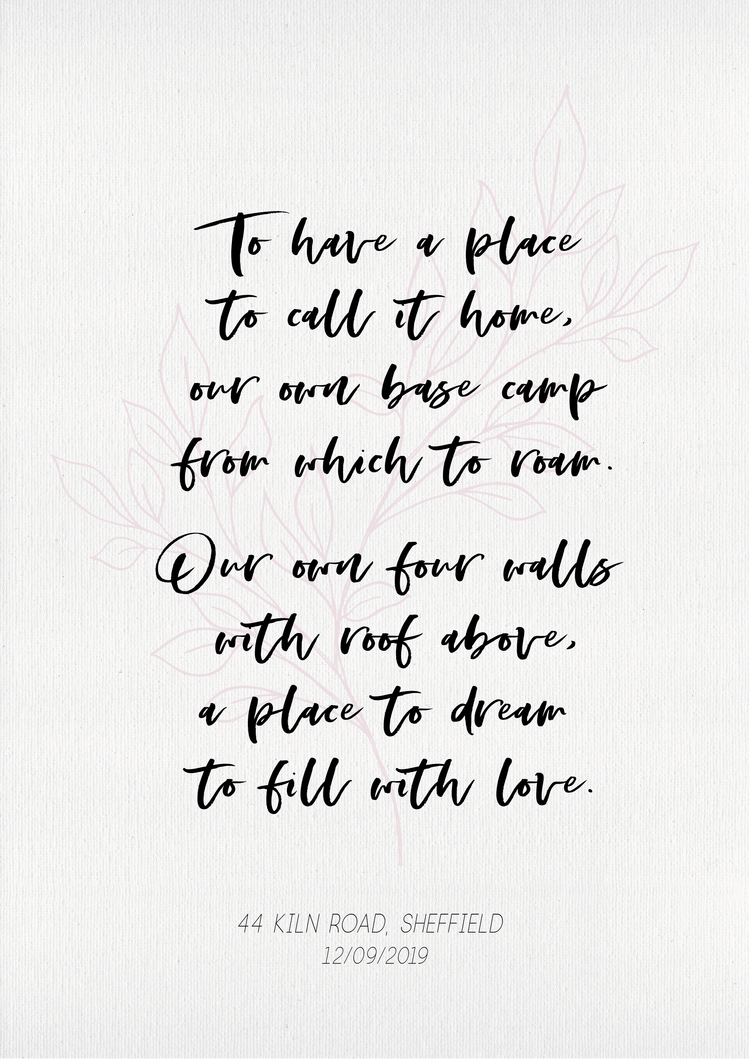 To have a place
to call it home,
our own base camp
from which to roam.
Our own four walls
with roof above,
a place to dream
to fill with love.
44 KILN ROAD, SHEFFIELD
12/09/2019